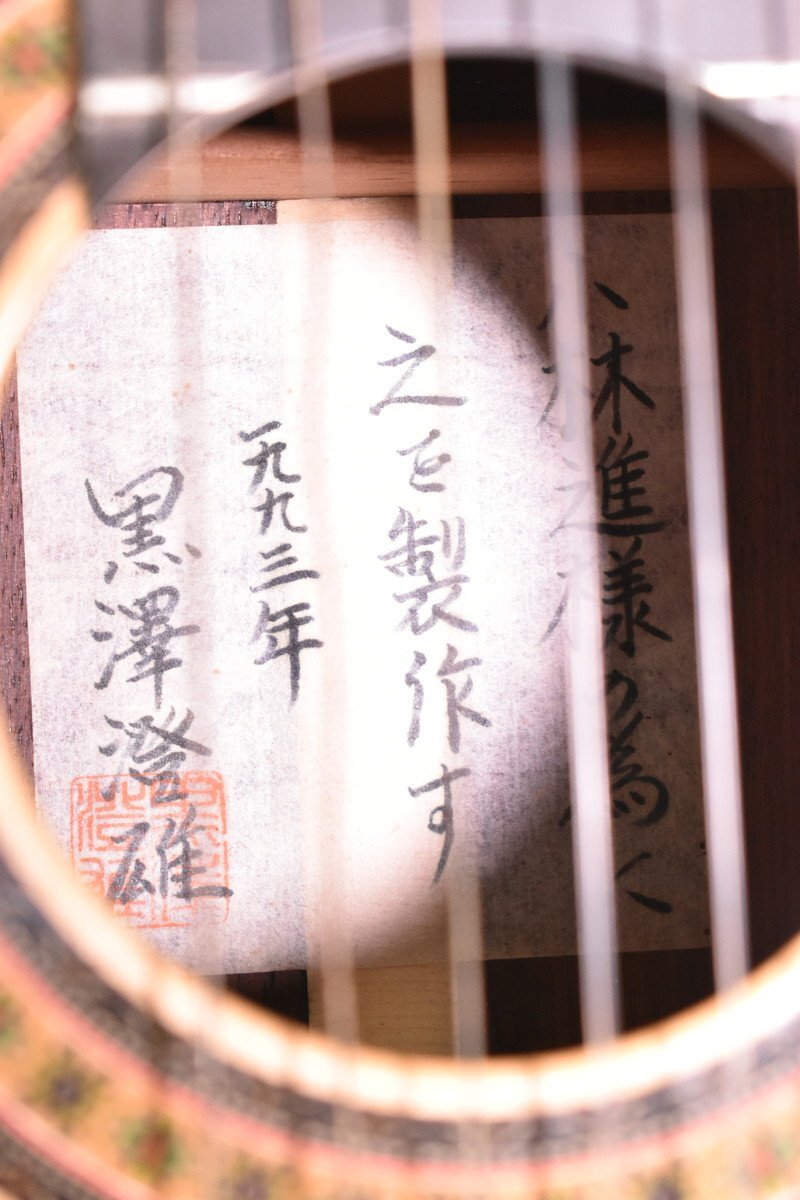 小林進様の為に
之を製作す
一九九三年
黒澤澄雄